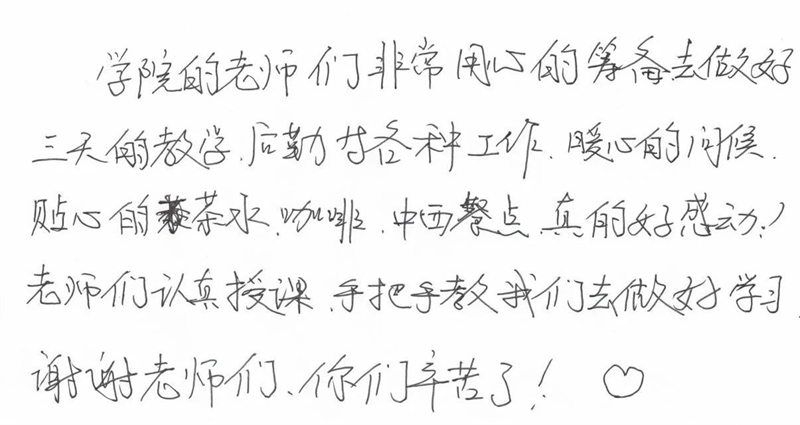 学院的老师们非常用心的筹备去做好
三天的教学、后勤等各种工作、暖心的问候、
贴心的茶水、咖啡、中西餐点、真的好感动！
老师们认真授课、手把手教我们去做好学习
谢谢老师们、你们辛苦了！♡